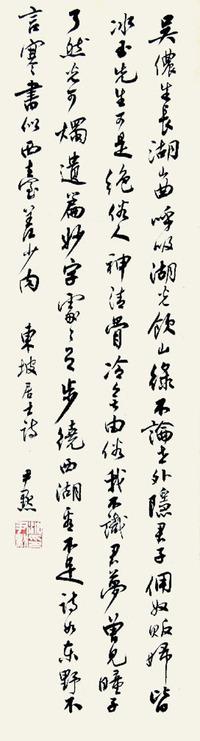 吳儂生長湖山曲呼吸湖光飲山綠不論世外隱君子佣奴販婦皆
冰玉先生可是絕俗人神清骨冷無由俗我不識君夢曾見瞳子
了然光可燭遺篇妙字處々有步繞西湖看不足詩如東野不
言寒書似西臺差少肉 東坡居士詩 尹默